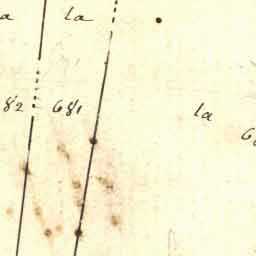 a la
82 681 la
6